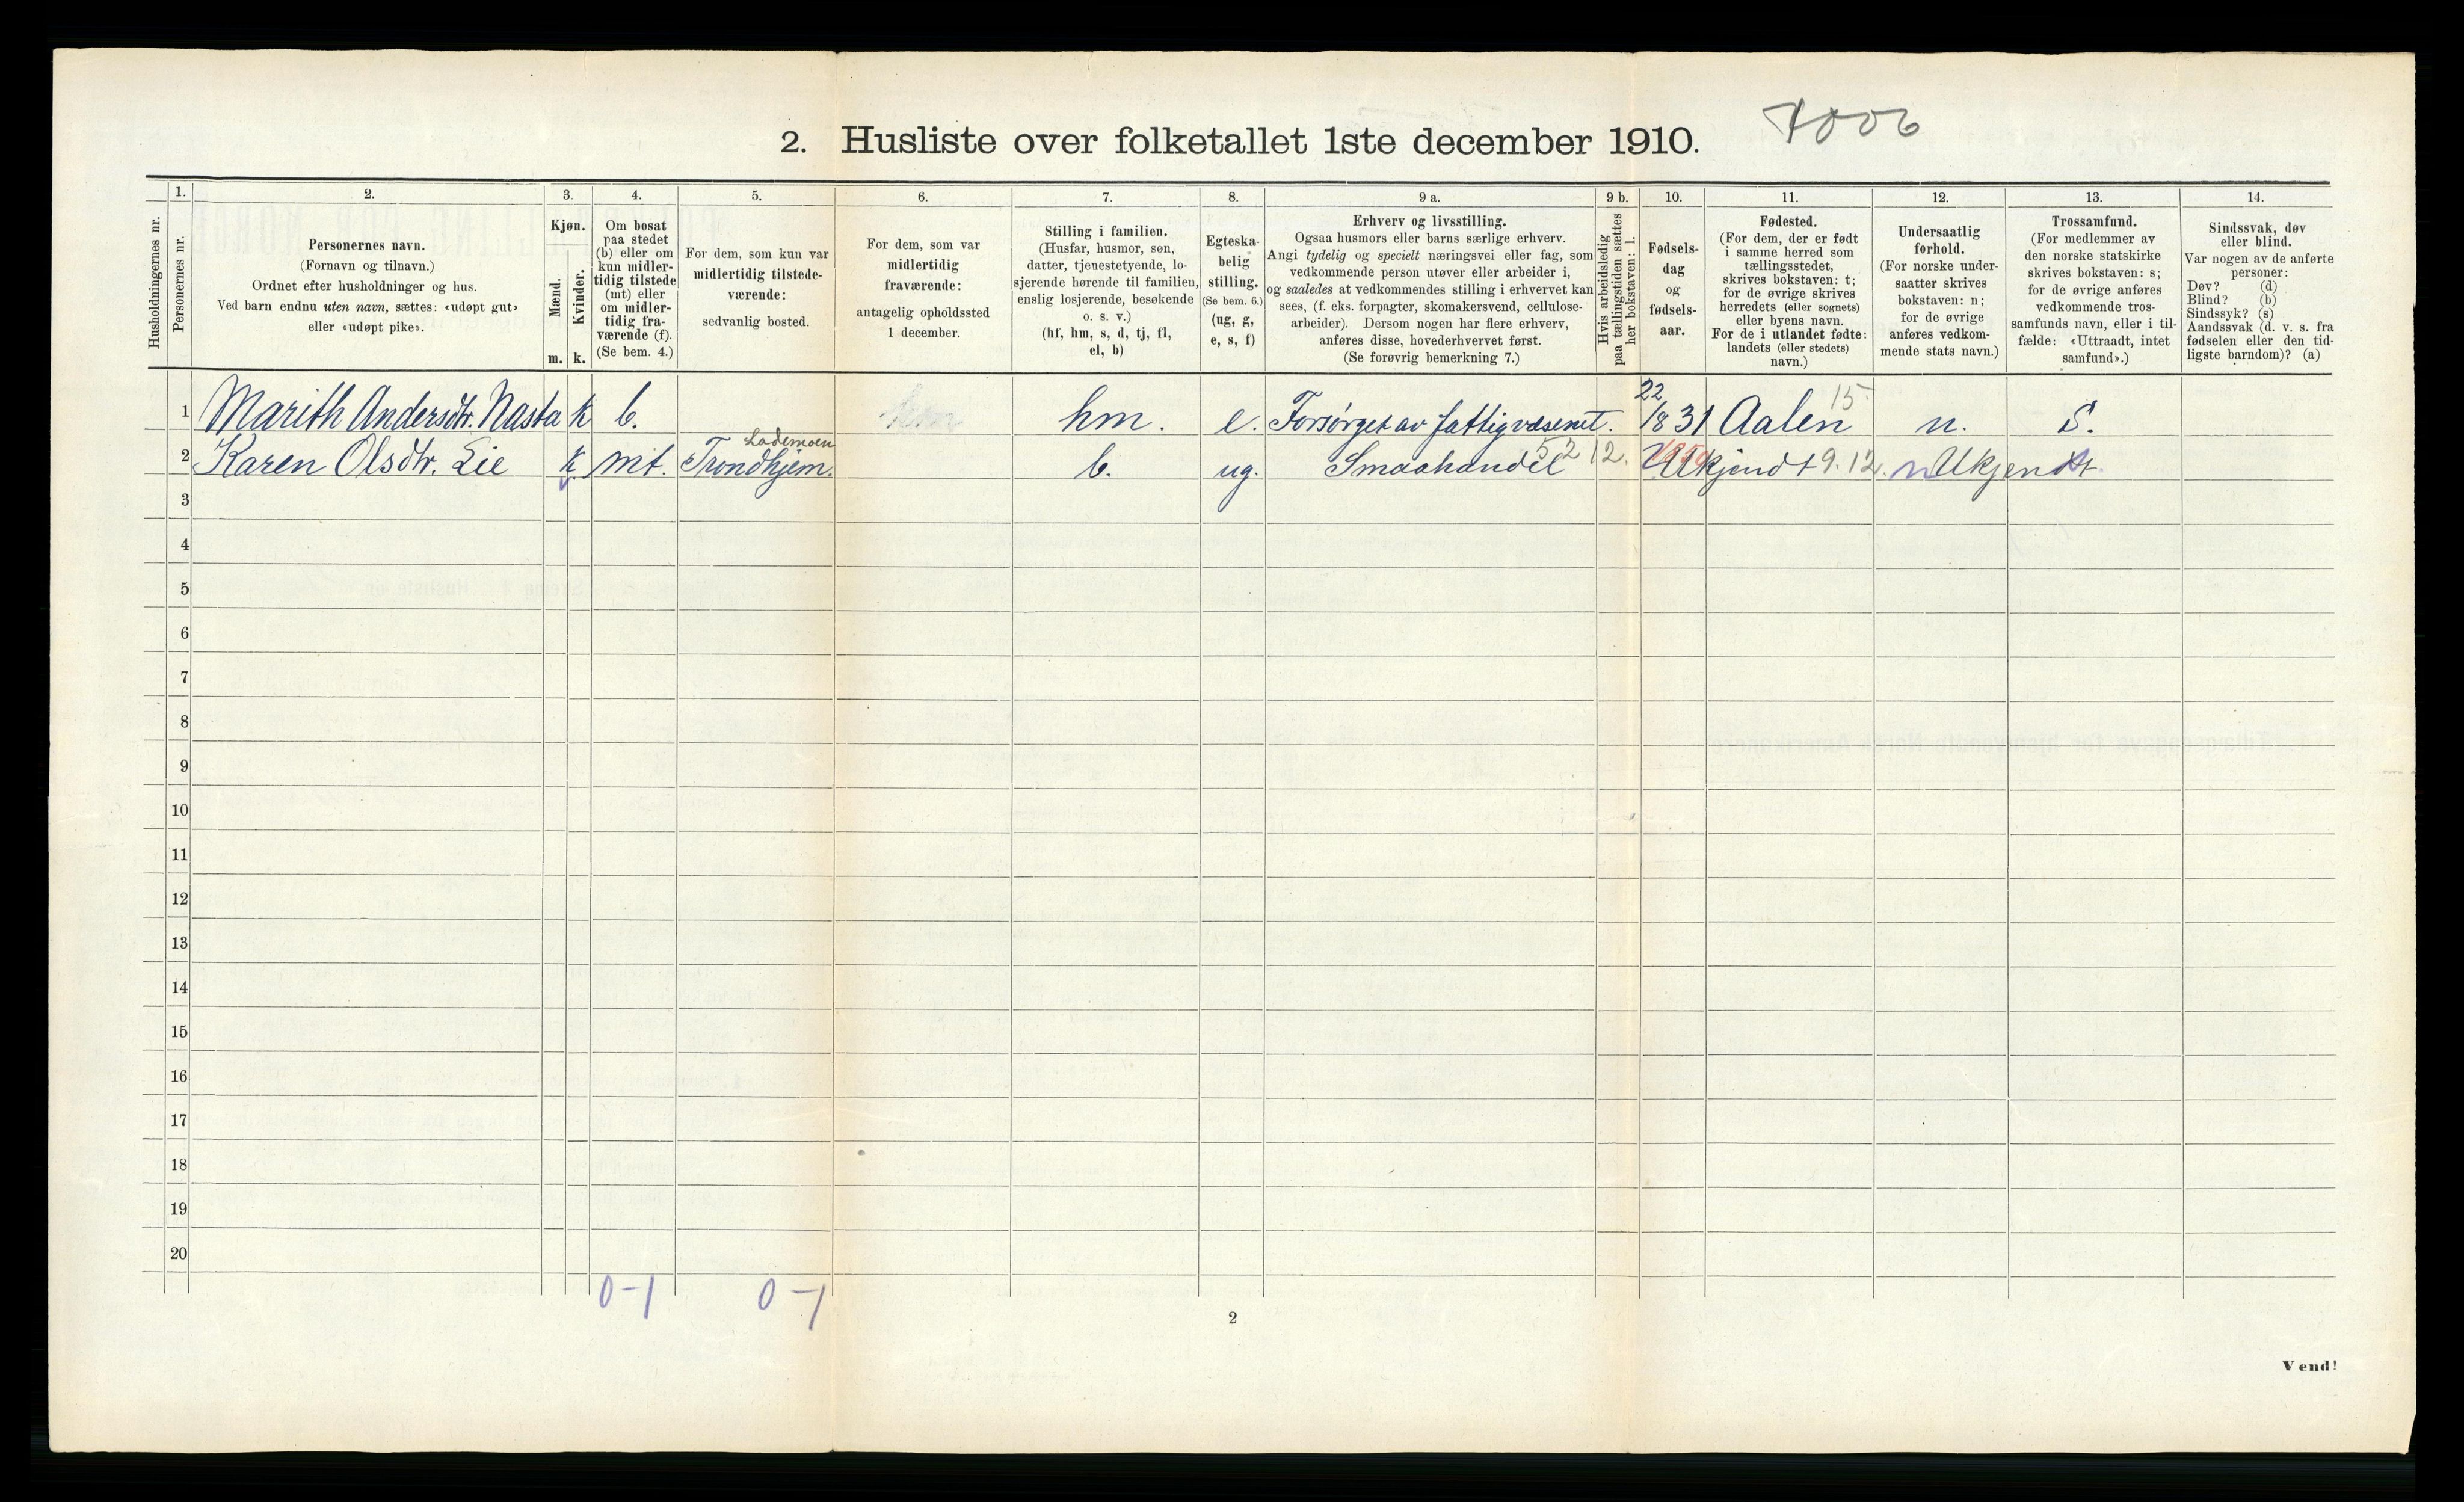 2. Husliste over folketallet 1ste december 1910.
Husholdningernes nr.
1. Personernes nr.
2. Personernes navn.
(Fornavn og tilnavn.)
Ordnet efter husholdninger og hus.
Ved barn endnu uten navn, sættes: «udøpt gut»
eller «udøpt pike».
3. Kjøn.
Mænd. Kvinder.
m. k.
4. Om bosat
paa stedet
(b) eller om
kun midler-
tidig tilstede
(mt) eller
om midler-
tidig fra-
værende (f).
(Se bem. 4.)
5. For dem, som kun var
midlertidig tilstede-
værende:
sedvanlig bosted.
6. For dem, som var
midlertidig
fraværende:
antagelig opholdssted
1 december.
7. Stilling i familien.
(Husfar, husmor, søn,
datter, tjenestetyende, lo-
sjerende hørende til familien,
enslig losjerende, besøkende
o. s. v.)
(hf, hm, s, d, tj, fl,
el, b)
8. Egteska-
belig
stilling.
(Se bem. 6.)
(ug, g,
e, s, f)
9 a. Erhverv og livsstilling.
Ogsaa husmors eller barns særlige erhverv.
Angi tydelig og specielt næringsvei eller fag, som
vedkommende person utøver eller arbeider i,
og saaledes at vedkommendes stilling i erhvervet kan
sees, (f. eks. forpagter, skomakersvend, cellulose-
arbeider). Dersom nogen har flere erhverv,
anføres disse, hovederhvervet først.
(Se forøvrig bemerkning 7.)
9 b. Hvis arbeidsledig
paa tællingstiden sættes
her bokstaven: l.
10. Fødsels-
dag
og
fødsels-
aar.
11. Fødested.
(For dem, der er født
i samme herred som
tællingsstedet,
skrives bokstaven: t;
for de øvrige skrives
herredets (eller sognets)
eller byens navn.
For de i utlandet fødte:
landets (eller stedets)
navn.)
12. Undersaatlig
forhold.
(For norske under-
saatter skrives
bokstaven: n;
for de øvrige
anføres vedkom-
mende stats navn.)
13. Trossamfund.
(For medlemmer av
den norske statskirke
skrives bokstaven: s;
for de øvrige anføres
vedkommende tros-
samfunds navn, eller i til-
fælde: «Uttraadt, intet
samfund».)
14. Sindssvak, døv
eller blind.
Var nogen av de anførte
personer:
Døv? (d)
Blind? (b)
Sindssyk? (s)
Aandssvak (d. v. s. fra
fødselen eller den tid-
ligste barndom)? (a)
1 Marith Andersdtr. Nasta k b. hm. e. Forsørget av fattigvæsenet. 22/8 31 Aalen 15 n. S.
Lademoen
2 Karen Olsdtr. Lie k mt. Trondhjem. b. ug. Smaahandel 52 12. Ukjendt 9.12. n Ukjendt
3
4
5
6
7
8
9
10
11
12
13
14
15
16
17
18
19
20
0-1 0-1
2
Vend!